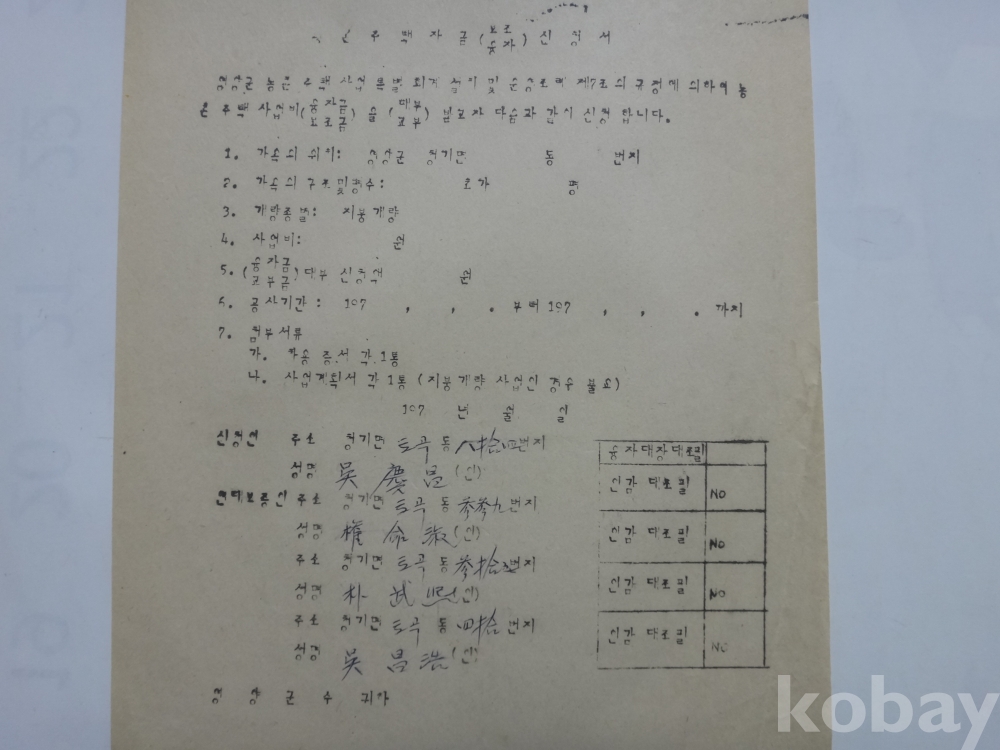 주택자금(보조 융자)신청서
농촌 주택사업 특별회계 설치 및 운영조례 제7조의 규정에 의하여 농
촌 주택 사업비(융자금 보조금)을 (대부 교부) 받고자 다음과 같이 신청 합니다.
1. 가옥의 위치: 면 동 번지
2. 가옥의 구조 및 평수: 초가 평
3. 개량종별: 지붕개량
4. 사업비: 원
5. (융자금 교부금) 대부 신청액 원
6. 공사기간: 197 , , . 부터 197 , , . 까지
7. 첨부서류
가. 차용 증서 각 1통
나. 사업계획서 각 1통 (지붕개량 사업인 경우 불요)
197 년 월 일
신청인 주소 청기면 토곡 동 번지
성명 吳慶 (인)
연대보증인 주소 청기면 토곡 동 번지
성명 權命淑 (인)
주소 청기면 토곡 동 번지
성명 朴武熙 (인)
주소 청기면 토곡 동 四拾 번지
성명 吳昌浩 (인)
융자대장대조필
인감 대조필 NO
인감 대조필 NO
인감 대조필 NO
인감 대조필 NO
군 수 귀하
kobay